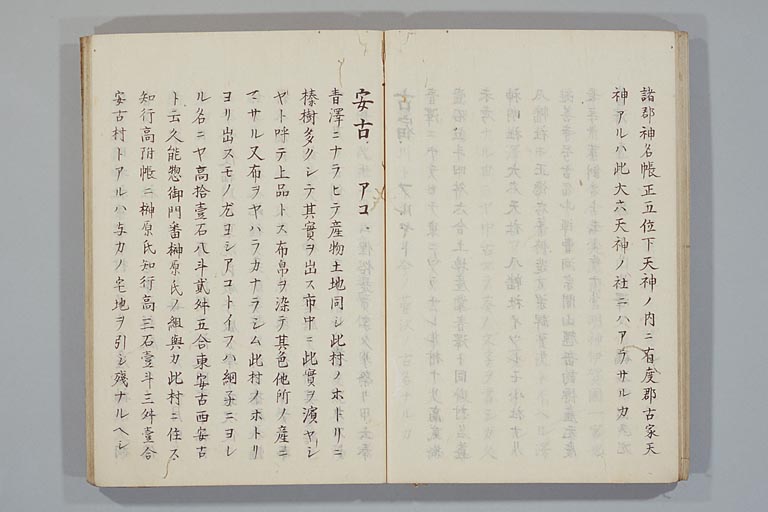 諸郡神名帳正五位下天神ノ内ニ有度郡古家天
神アルハ此大六天神ノ社ニハアラサルカ
安古 アコ
青澤ニナラヒテ産物土地同シ此村ノホトリニ
榛樹多クシテ其實ヲ出ス市中ニ此實ヲ濱ヤシ
ヤト呼テ上品トス布帛ヲ染テ其色他所ノ産ニ
マサル又布ヲヤハラカナラシム此村ノホトリ
ヨリ出スモノ尤ヨシアコトイフハ網子ニヨレ
ル名ニヤ高拾壹石八斗貳舛五合東安古西安古
ト云久能惣御門番榊原氏ノ組與力此村ニ住ス
知行高附帳ニ榊原氏知行高三石壹斗三舛壹合
安古村トアルハ与力ノ宅地ヲ引シ殘ナルヘシ